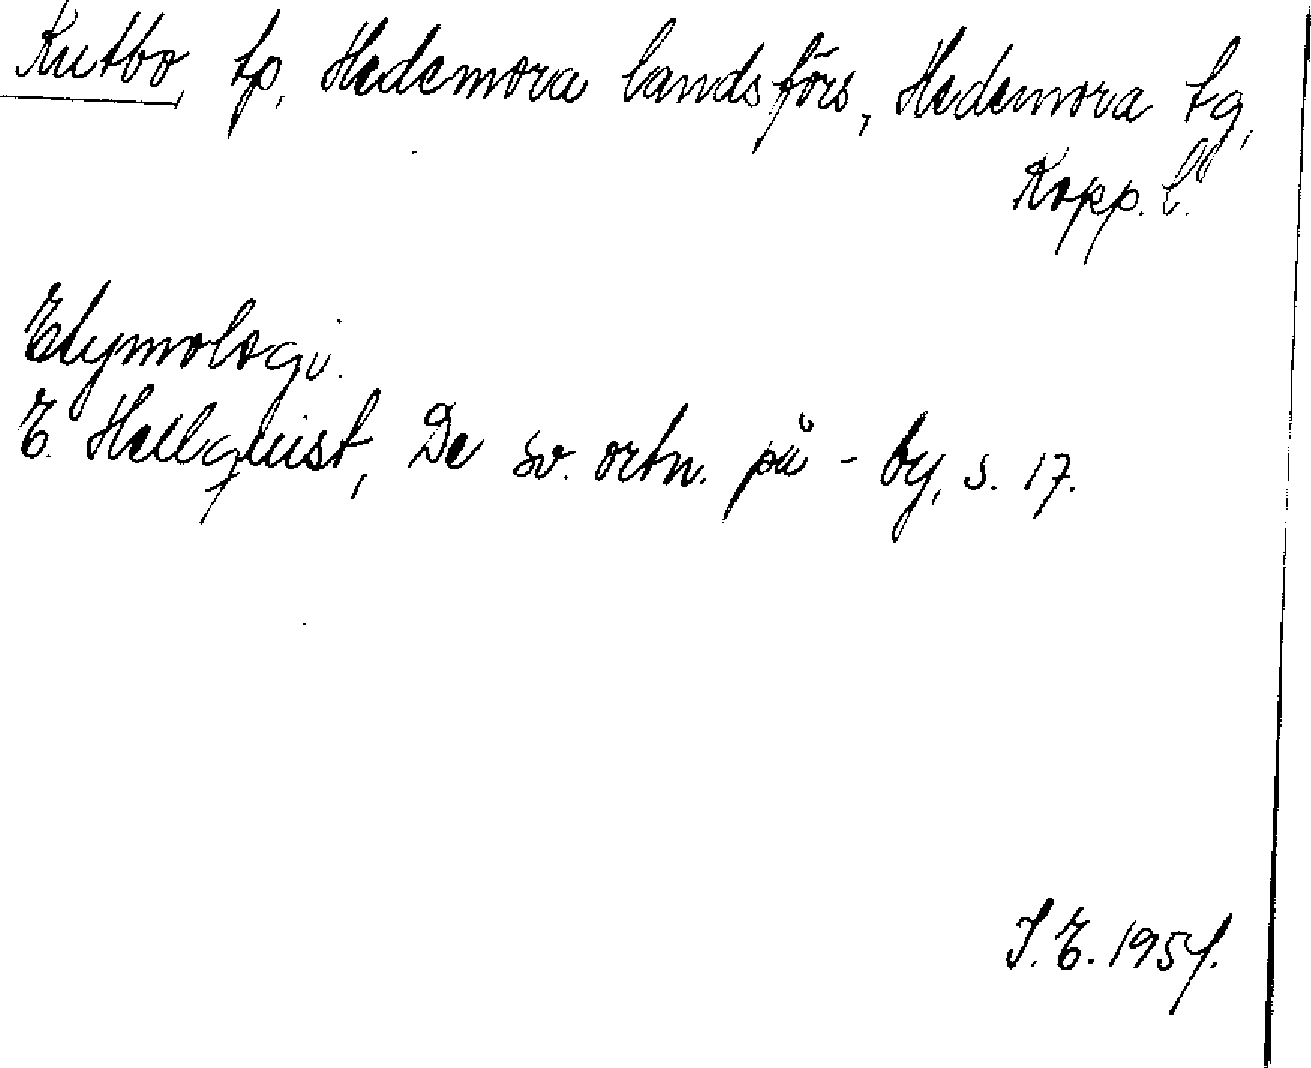 Kutbo, tp, Hedemora landsförs, Hedemora tg,
Kopp. l.
Etymologi.
E. Hellquist, De sv. ortn. på - by, s. 17.
I. E. 1954.